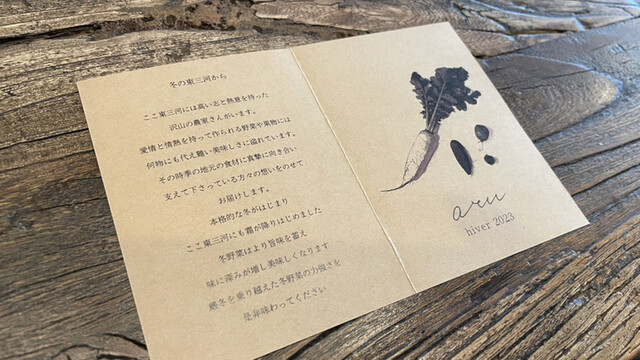 冬の東三河から
ここ東三河には高い志と熱意を持った
沢山の農家さんがいます。
愛情と情熱を持って作られる野菜や果物には
何物にも代え難い美味しさに溢れています。
その時季の地元の食材に真摯に向き合い
支えて下さっている方々の想いをのせて
お届けします。
本格的な冬がはじまり
ここ東三河にも霜が降りはじめました
冬野菜はより旨味を蓄え
味に深みが増し美味しくなります
厳冬を乗り越えた冬野菜の力強さを
是非味わってください
aru
hiver 2023